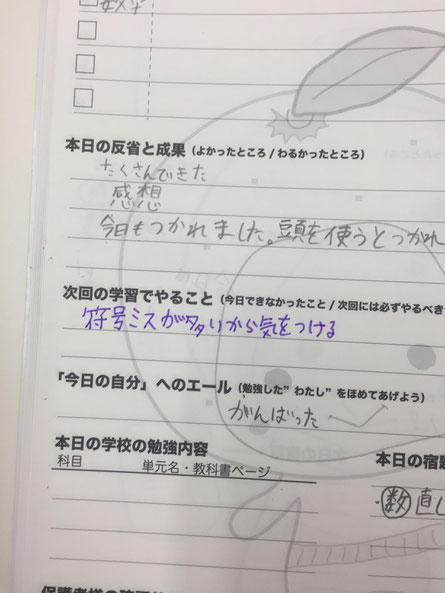 数学
本日の反省と成果（よかったところ / わるかったところ）
たくさんできた
感想
今日もつかれました。頭を使うとつかれ
次回の学習でやること（今日できなかったこと / 次回には必ずやるべき
符号ミスが多いから気をつける
「今日の自分」へのエール（勉強した”わたし”をほめてあげよう）
がんばった〜
本日の学校の勉強内容
本日の宿題
科目 単元名・教科書ページ
・数直し